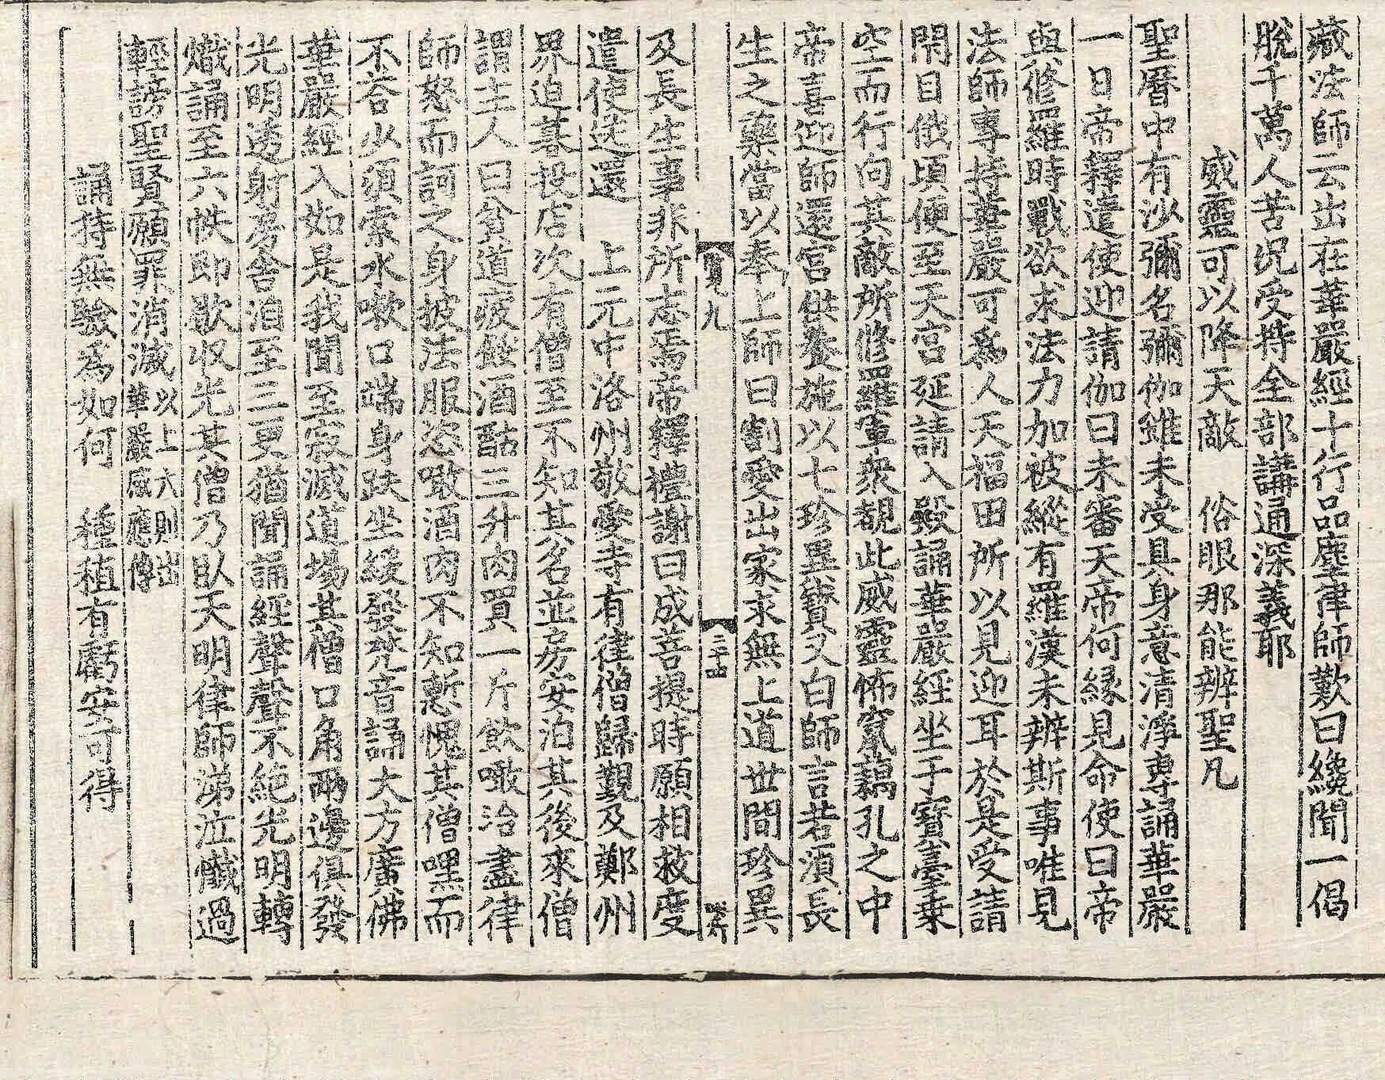 藏法師云出在華嚴經十行品塵律師歎曰纔聞一偈
脫千萬人苦況受持全部講通深義耶
威靈可以降天敵　俗眼那能辨聖凡
聖曆中有沙彌名彌伽雖未受具身意清淨專誦華嚴
一日帝釋遣使迎請伽曰未審天帝何緣見命使曰帝
與修羅時戰欲求法力加被縱有羅漢未辨斯事唯見
法師專持華嚴可為人天福田所以見迎耳於是受請
閇目俄頃便至天宮延請入殿誦華嚴經坐于寶臺乗
空而行向其敵所修羅軍衆覩此威靈怖竄藕孔之中
帝喜迎師還宮供養施以七珍異寶又白師言若湏長
生之藥當以奉上師曰割愛出家求無上道世間珍異
寶九
及長生事非所志焉帝釋禮謝曰成菩提時願相救度
遣使送還　上元中洛州敬愛寺有律僧歸覲及鄭州
界迫暮投店次有僧至不知其名並房安泊其後來僧
謂主人曰貧道疲僉酒酤三升肉買一斤飲噉治盡律
師怒而訶之身披法服恣噉酒肉不知慙愧其僧嘿而
不荅少湏索水嗽口端身趺坐緩發梵音誦大方廣佛
華嚴經入如是我聞至寂滅道場其僧口角兩邊俱發
光明透射房舍洎至三更猶聞誦經聲聲不絕光明轉
熾誦至六帙即歇收光其僧乃臥天明律師涕泣懺過
輕謗聖賢願罪消滅以上六則出華嚴感應傳
誦持無驗為如何　種植有虧安可得